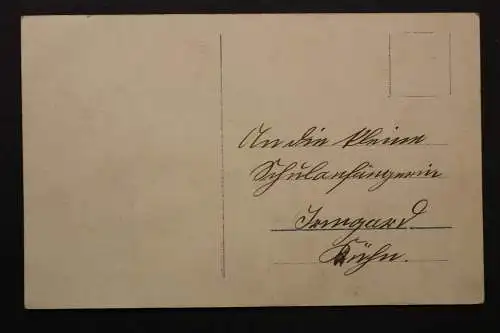 An die kleine
Schulanfängerin
Irmgard
Kühn.